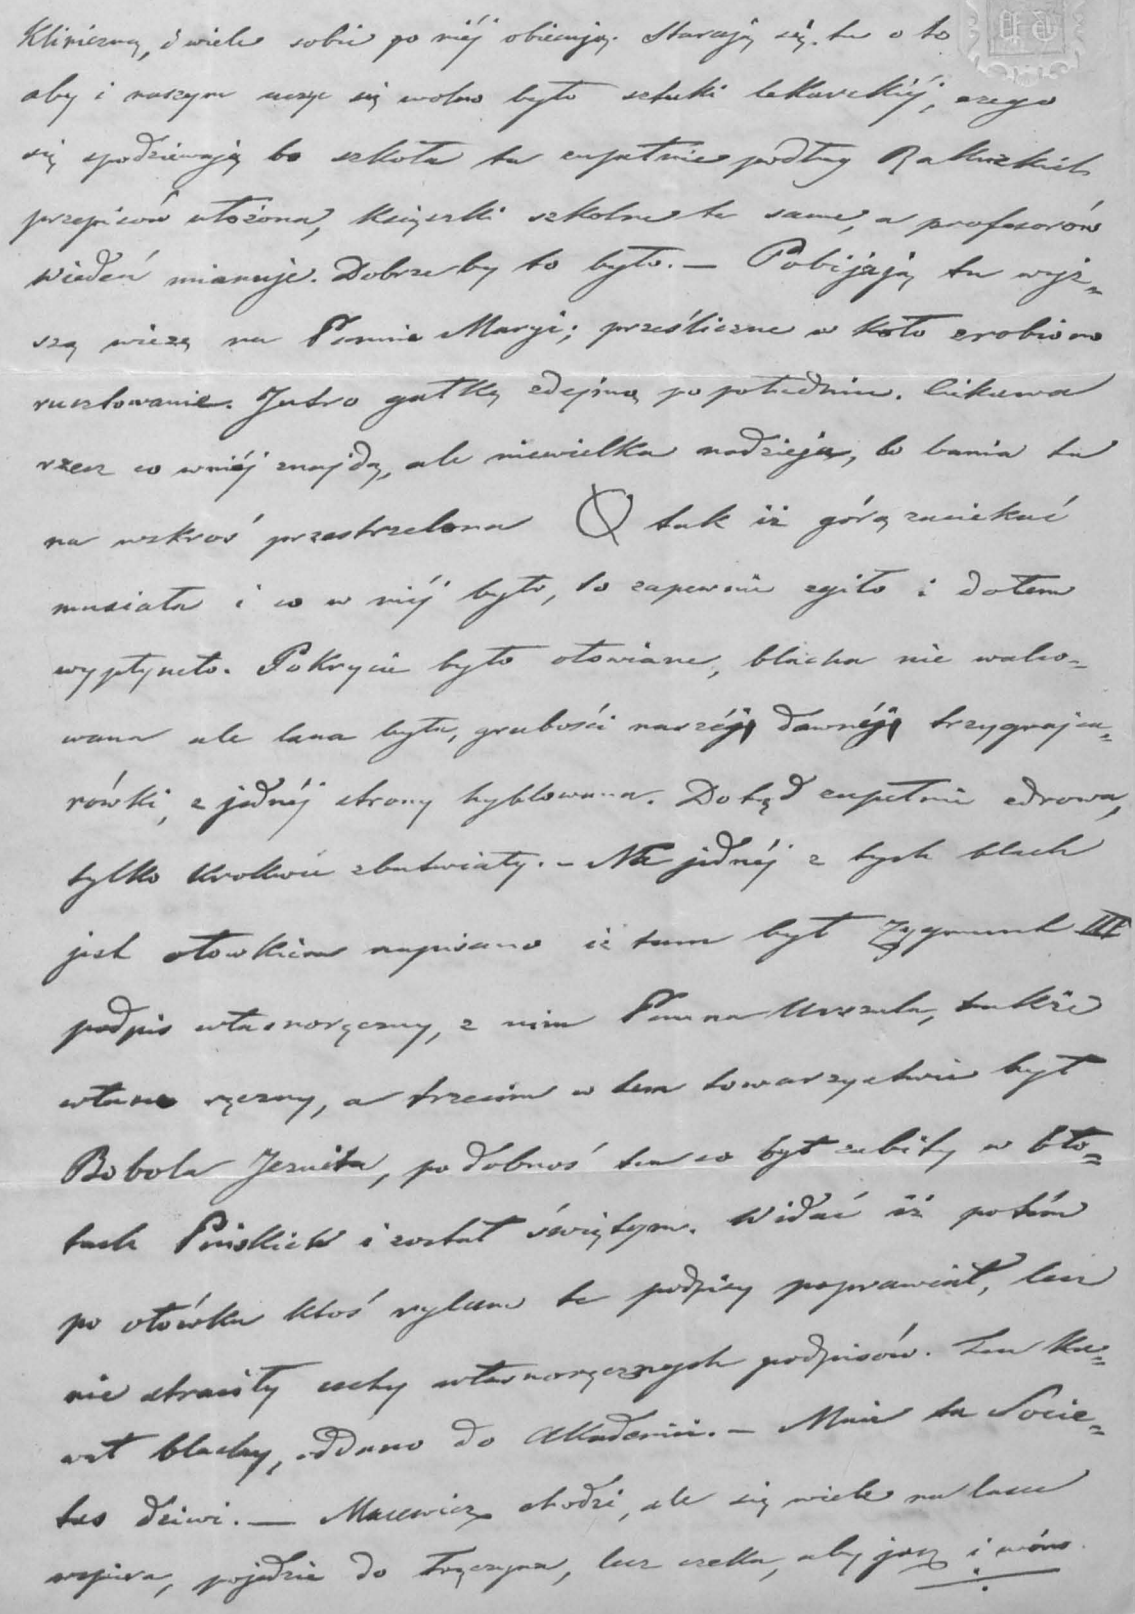 Kliniczną, i wiele sobie po niéj obiecują. Starają się tu o to
aby i naszym uczyć się wolno było sztuki lekarskiéj, czego
się spodziewają bo szkoła tu zupełnie podług Rakuzkich
przepisów ułożona, książki szkolne te same, a profesorów
Wiedeń mianuje. Dobrze by to było. — Pobijają tu wyż=
szą wieżą na Pannie Maryi; prześliczne w koło zrobiono
rusztowanie. Jutro gałkę zdejmą po południu. Ciekawa
rzecz co w niéj znajdą, ale niewielka nadzieja, bo bania ta
na wskroś przestrzelona tak iż górą zaciekać
musiała i co w niéj było, to zapewnie zgiło i dołem
wypłyneło. Pokrycie było ołowiane, blacha nie walco=
wana ale lana była, grubości naszéj dawnéj trzygrajca=
rówki, z jednéj strony hyblowana. Dotąd zupełnie zdrowa,
tylko krokwie zbutwiały. — Na jednéj z tych blach
jest ołowkiem napisano iż tam był Zygmunt III
podpis własnoręczny, z nim Panna Urszula, także
własno ręczny, a trzecim w tem towarzystwie był
Bobola Jezuita, podobnoś ten co był zabity w bło=
tach Pińskich i został świętym. Widać iż potém
po ołówku ktoś rylcem te podpisy poprawiał, lecz
nie straciły cechy własnoręcznych podpisów. Ten ka=
wał blachy, oddano do Akademii. — Mnie ta Socie=
tas dziwi. — Macewicz chodzi, ale się wiele na lasce
wspiera, pojedzie do Tęczyna, lecz czeka, aby i